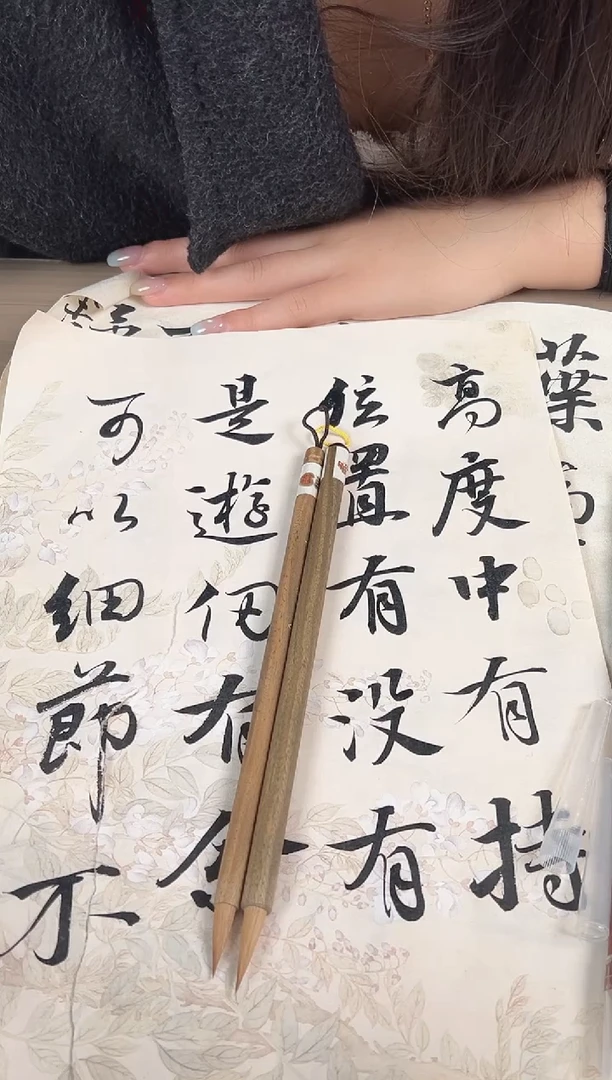 高度中有持
位置有没有
是遊但有會
可以細節不
葉